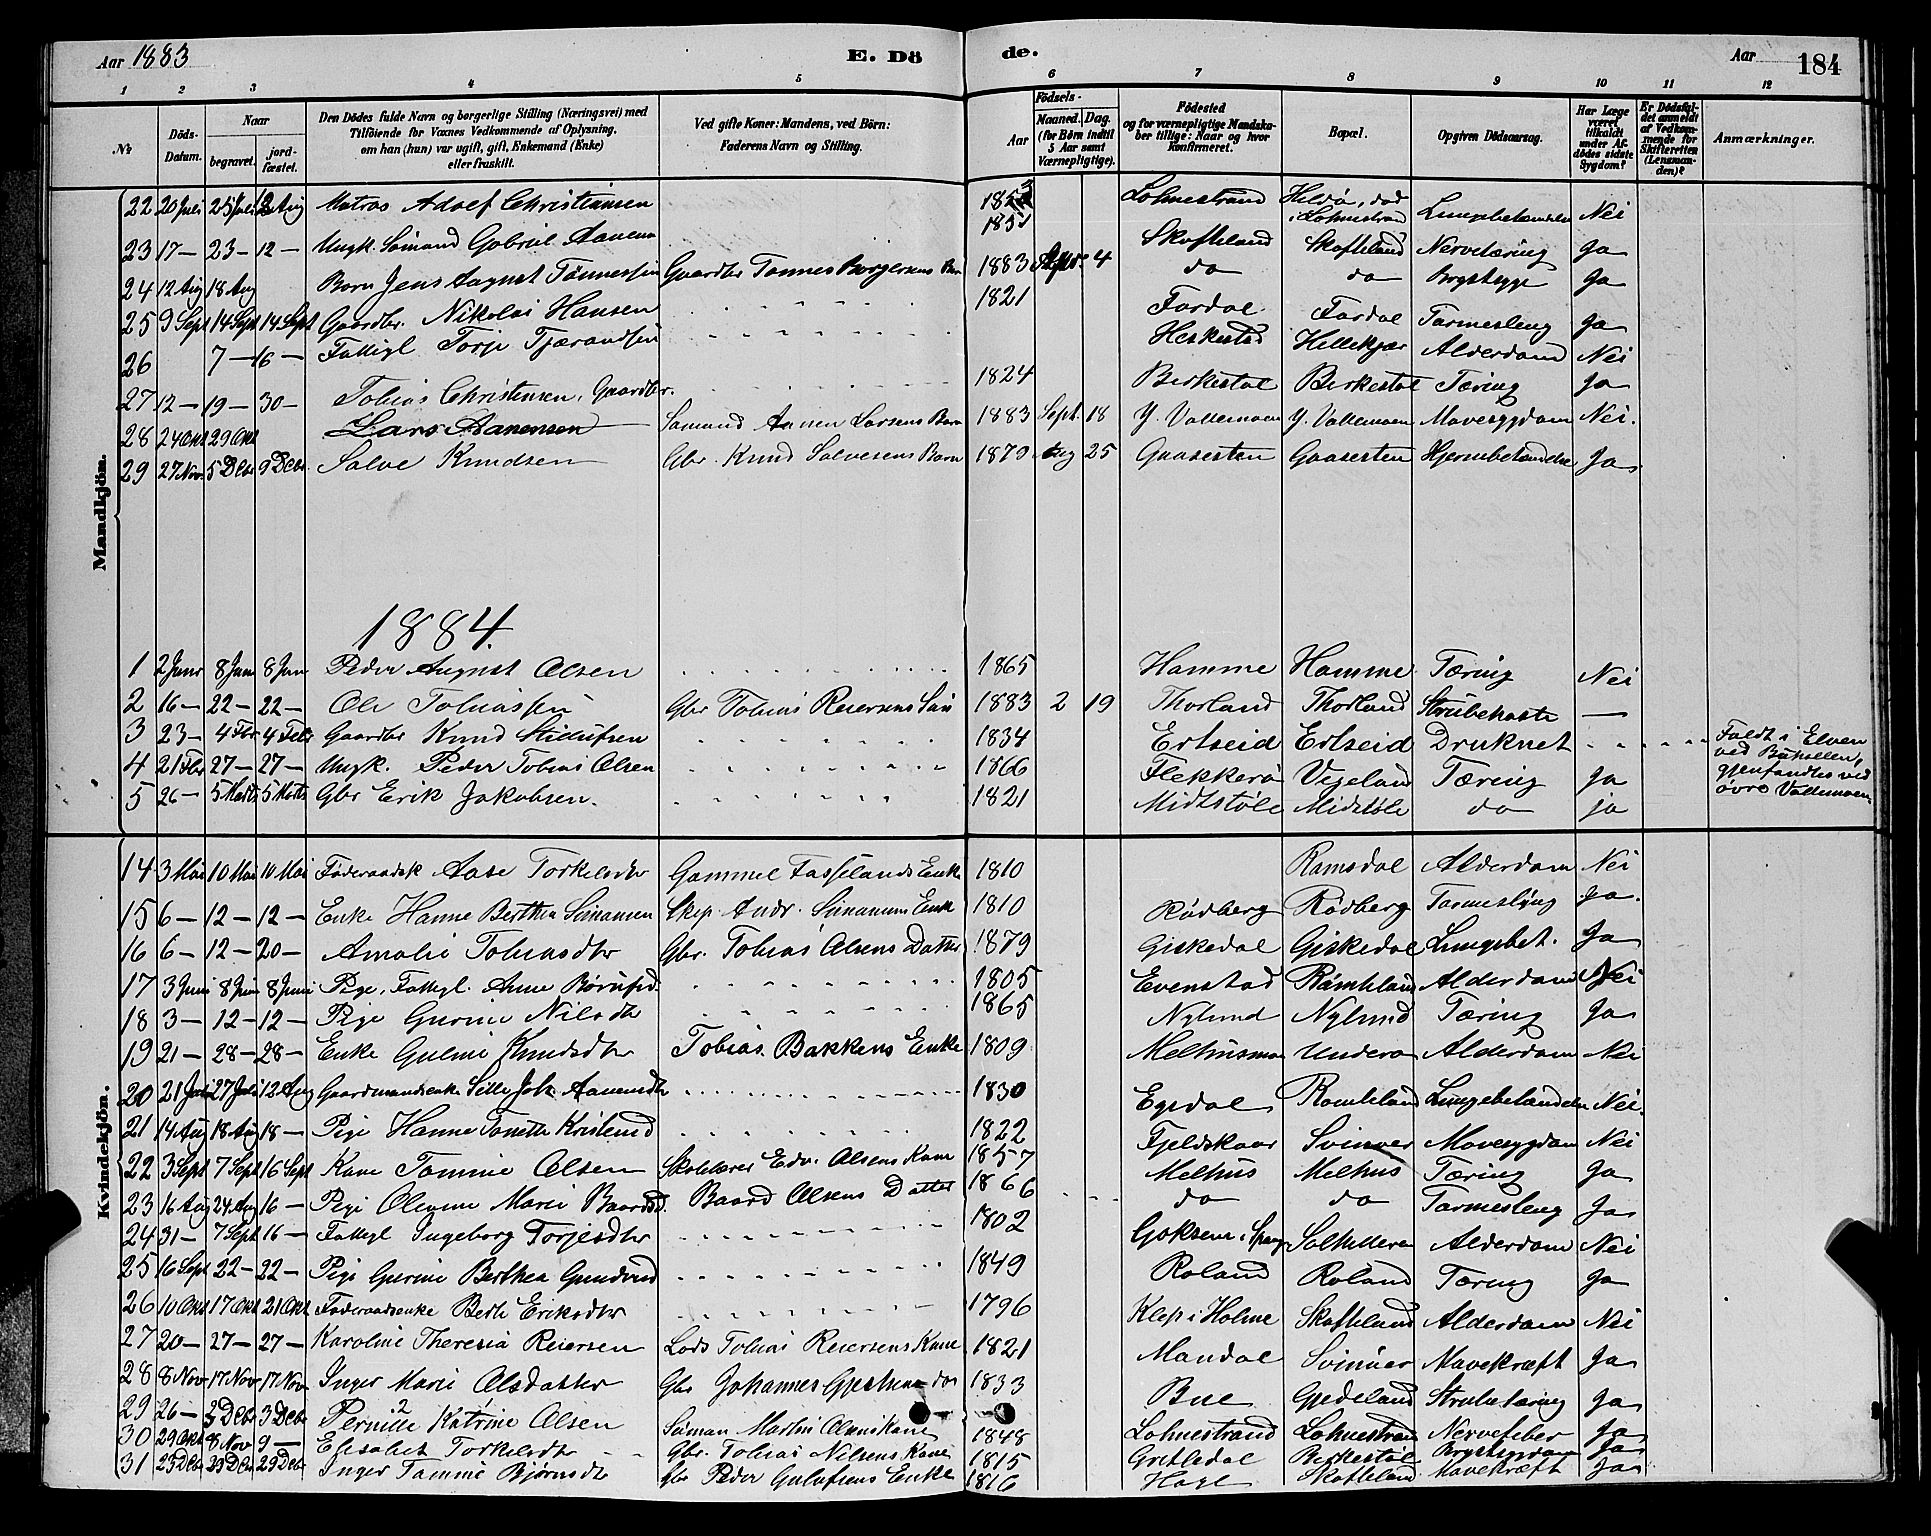 Aar 1883 E. Dö de. Aar 184
1 2 3 4 5 6 7 8 9 10 11 12
№ Döds-Datum. Naar begravet. jordfæstet. Den Dödes fulde Navn og borgerlige Stilling (Næringsvei) med Tilföiende for Voxnes Vedkommende af Oplysning. om han (hun) var ugift, gift, Enkemand (Enke) eller fraskilt. Ved gifte Koner: Mandens, ved Börn: Faderens Navn og Stilling. Födsels- Aar Maaned. Dag. (for Börn indtil 5 Aar samt Værnepligtige). Födested og for værnepligtige Mandskaber tillige: Naar og hvor konfirmeret. Bopæl. Opgiven Dödsaarsag. Har Læge været tilkaldt under Afdödes sidste Sygdom? Er Dödsfaldet anmeldt af Vedkommende for Skifteretten (Lensmanden)? Anmærkninger.
Mandkjön.
22 20 Juli 25 Juli 12 Aug Matros Adolf Christiansen 1853 Lohnestrand Hildö, död i Lohnestrand Lungebetændelse Nei
23 17 — 23 — 12 — Ungk. Sömand Gabriel Aanensen 1851 Skofteland Skofteland Nervetæring Ja
24 12 Aug 18 Aug Barn Jens August Tönnessen Gaardbr Tönnes Börgersens Barn 1883 4 do do Brystsyge Ja
25 9 Sept 14 Sept 14 Sept Gaardbr. Nikolai Hansen 1821 Fardal Fardal Tarmesleng Ja
26 7 — 16 — Fattigl Torje Tjærandsen Heskestad Hellekjær Alderdom Nei
27 12 — 19 — 30 — Tobias Christensen, Gaardbr. 1824 Birkestöl Birkestöl Tæring Ja
28 24 Okt 29 Okt Lars Aanensen Sömand Aanen Larsens Barn 1883 Sept. 18 Y. Vallemoen Y. Vallemoen Mavesygdom Nei.
29 27 Nov. 5 Debr 9 Debr. Salve Knudsen Gbr. Knud Salvesens Barn 1879 Aug 25 Gaaserten Gaaserten Hjernebetændelse Ja
1884.
1 2 Janr 8 Jan 8 Jan Peder August Olsen 1865 Homme Homme Tæring Nei
2 16 — 22 — 22 — Ole Tobiassen Gbr Tobias Reiersens Sön 1883 2 19 Thorland Thorland Strubehoste —
3 23 — 4 Fbr 4 Febr Gaardbr Knud 1834 Ertseid Ertseid Druknet Faldt i Elven ved gjenfandtes ved övre Vallemoen.
4 21 Fbr 27 — 27 — Ungk. Peder Tobias Olsen 1866 Flekkerö Vegeland Tæring Ja
5 26 — 5 Marts 5 Marts Gbr Erik Jakobsen. 1821 Midtstöle Midtstöle do ja
Kvindekjön.
14 3 Mai 10 Mai 10 Mai Föderaadsk Aase Torkelsdtr Gammel Fasselands Enke 1810 Ramsdal Alderdom Nei
15 6 — 12 — 12 — Enke Hanne Berthea Sinnansen Skip. Andr. Enke 1810 Rödberg Rödberg Tarmeslyng Ja.
16 6 — 12 — 20 — Amalie Tobiasdtr Gbr. Tobias Olsens Datter 1879 Giskedal Giskedal Lungebet. Ja
17 3 Juni 8 Juni 8 Juni Pige, Fattigl. Anne 1805 Evenstad Alderdom Nei
18 3 — 12 — 12 — Pige Gurine Nilsdtr 1865 Nylund Nylund Tæring Ja
19 21 — 28 — 28 — Enke Guline Knudsdtr Tobias Bakkens Enke 1809 Melhusmoen Underö Alderdom Nei
20 21 Juli 27 Juli 12 Aug Gaardmandsenke Sille Joh. Aanensdtr 1830 Egsdal Romteland Lungebetændelse Nei.
21 14 Aug 18 Aug 18 — Pige Hanne Tonette 1822 Fjeldskaar Svinör Mavesygdom Nei
22 3 Sept 7 Sept 16 Sept Kone Tomine Olsen Skolelærer Edv. Olsens Kone 1857 Melhus Melhus Tæring Ja
23 16 Aug 24 Aug 16 — Pige Olevine Marie Baardsd. Baard Olsens Datter 1866 do do Tarmesleng Ja
24 31 — 7 Sept 16 — Fattigl Ingeborg Torjesdtr 1802 Alderdom Nei
25 16 Sept 22 — 22 — Pige Gurine Berthea 1849 Roland Roland Tæring Ja
26 10 Okt 17 Okt 21 Okt Föderaadsenke Berte Eriksdtr 1796 Klep i Holme Skofteland Alderdom Nei
27 20 — 27 — 27 — Karoline Theresia Reiersen Lods Tobias Reiersens Kone 1821 Mandal Svinör Mavekræft Ja
28 8 Nov 17 Nov 17 Nov Inger Marie Olsdatter Gbr Johannes 1833 Bue Gjedeland Strubetæring Ja
29 26 — 3 Debr 3 Debr Pernille Katrine Olsen Sömand Martin Kone 1848 Lohnestrand Lohnestrand Nervefeber Ja
30 29 Okt 8 Nov 9 — Elisabet Torkelsdtr Gbr. Tobias Nilsens Kone 1815 Gretledal Birkestöl Brystsygdom Ja
31 23 Debr 29 Debr 29 Debr Inger Tomine Björnsdtr Gbr Peder Gulufsens Enke 1816 Hage Skofteland Mavekræft Ja